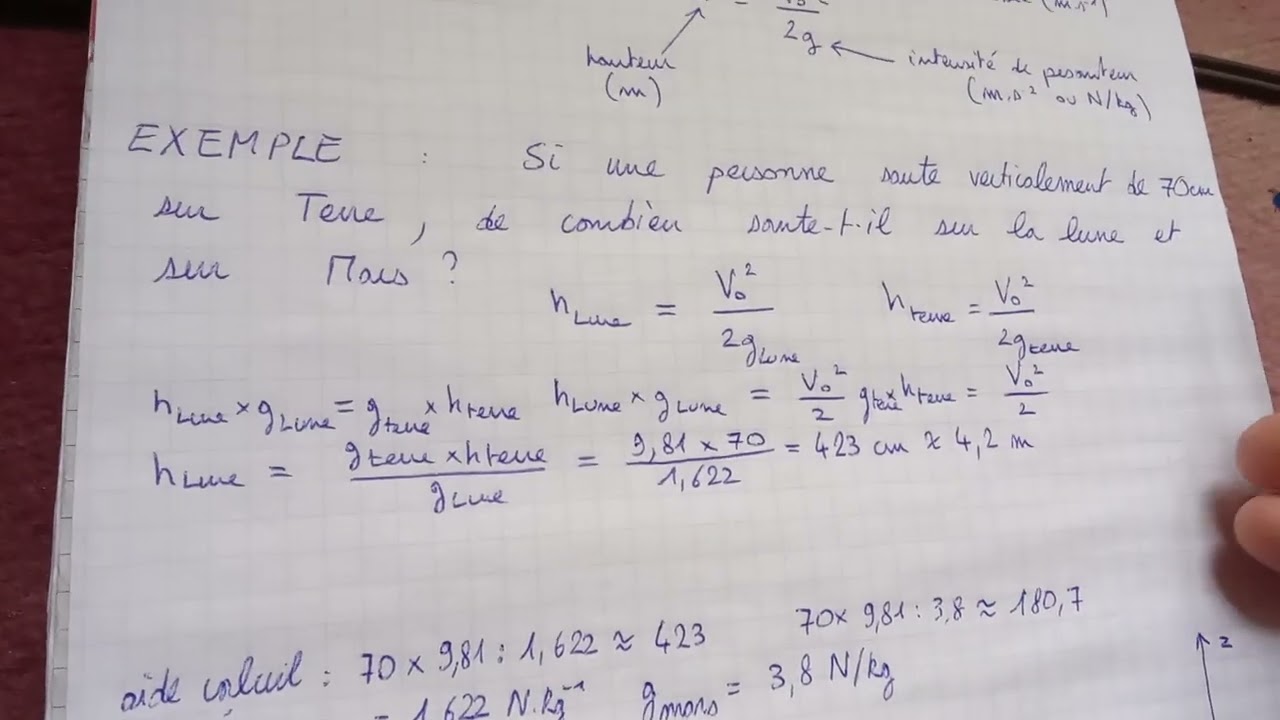 2g
hauteur
(m)
intensité de pesanteur
(m.s⁻² ou N/kg)
EXEMPLE : Si une personne saute verticalement de 70cm
sur Terre, de combien saute-t-il sur la lune et
sur Mars ?
h_Lune = V₀²/2g_Lune h_terre = V₀²/2g_terre
h_Lune × g_Lune = g_terre × h_terre h_Lune × g_Lune = V₀²/2 g_terre × h_terre = V₀²/2
h_Lune = g_terre × h_terre/g_Lune = 9,81 × 70/1,622 = 423 cm ≈ 4,2 m
70 × 9,81 : 3,8 ≈ 180,7
aide calcul : 70 × 9,81 : 1,622 ≈ 423
= 1,622 N.kg⁻¹ g_mars = 3,8 N/kg
z